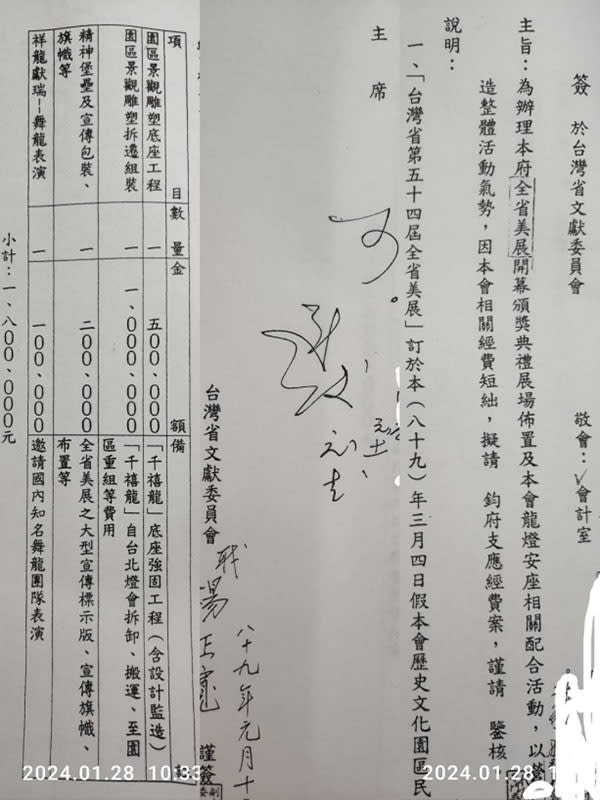 簽　於台灣省文獻委員會
敬會：會計室
主旨：為辦理本府全省美展開幕頒獎典禮展場佈置及本會龍燈安座相關配合活動，以營
造整體活動氣勢，因本會相關經費短絀，擬請　鈞府支應經費案，謹請　鑒核
說明：
一、「台灣省第五十四屆全省美展」訂於本（八十九）年三月四日假本會歷史文化園區民
主　席
可。
台灣省文獻委員會
職
謹簽
八十九年元月十
項　目　數量　金　額　備
園區景觀雕塑底座工程　一　五００、０００　「千禧龍」底座強固工程（含設計監造）
園區景觀雕塑拆遷組裝　一　一、０００、０００　「千禧龍」自台北燈會拆卸、搬運、至園
區重組等費用
精神堡壘及宣傳包裝、　一　二００、０００　全省美展之大型宣傳標示版、宣傳旗幟、
旗幟等　布置等
祥龍獻瑞－舞龍表演　一　一００、０００　邀請國內知名舞龍團隊表演
小計：一、八００、０００元
2024.01.28 10:33
2024.01.28 10:33